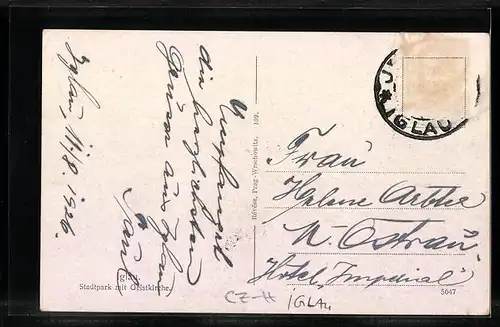 Iglau, 11/8. 1926.
Empfanget
die herzlichsten
Grüsse aus Iglau
Iglau.
Stadtpark mit Christkirche.
Hérdos, Prag-Wrschowitz. 109.
IGLAU
Frau
Helene
M. Ostrau
Hotel „Imperial"
5047
CZ-H IGLAU